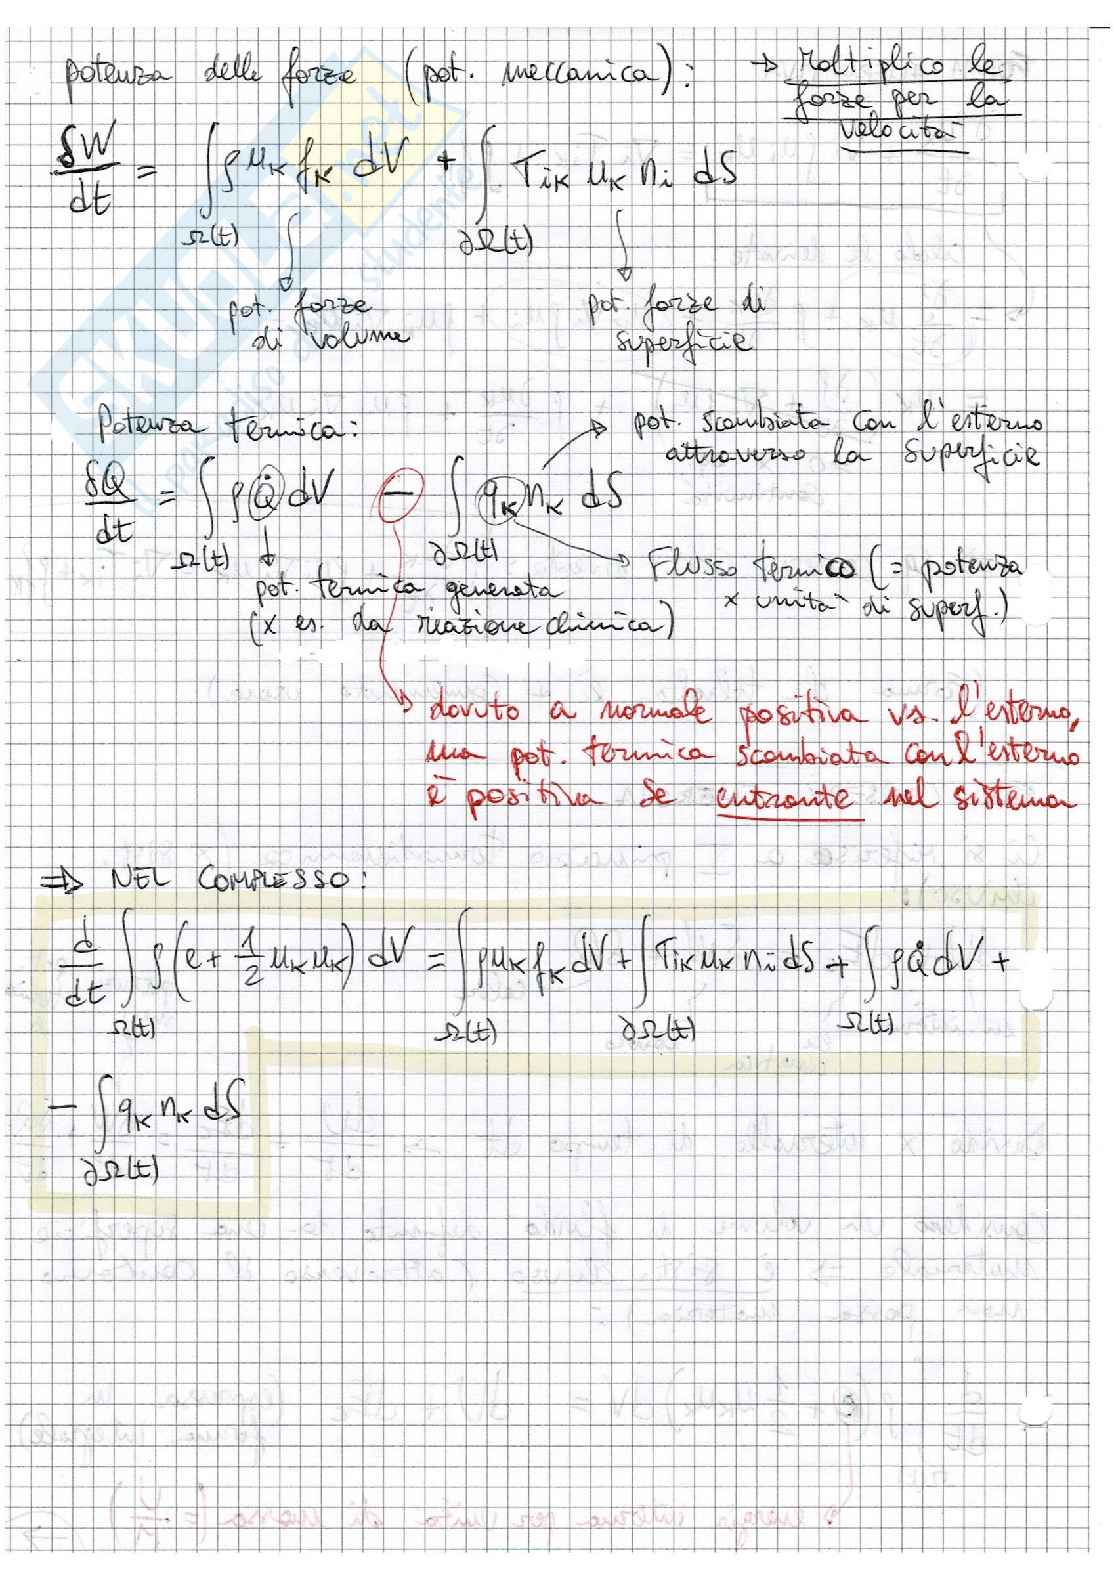 potenza delle forze (pot. meccanica): → Moltiplico le
forze per la
velocità
δW/dt = ∫_Ω(t) ρ u_K f_K dV + ∫_∂Ω(t) T_iK u_K n_i dS
pot. forze
di volume
pot. forze di
superficie
Potenza termica:
pot. scambiata con l'esterno
attraverso la superficie
δQ/dt = ∫_Ω(t) ρ Q̇ dV − ∫_∂Ω(t) q_K n_K dS
pot. termica generata
(x es. da reazione chimica)
Flusso termico (= potenza
x unità di superf.)
dovuto a normale positiva vs. l'esterno,
ma pot. termica scambiata con l'esterno
è positiva se entrante nel sistema
⇒ NEL COMPLESSO:
d/dt ∫_Ω(t) ρ(e + 1/2 u_K u_K) dV = ∫_Ω(t) ρ u_K f_K dV + ∫_∂Ω(t) T_iK u_K n_i dS + ∫_Ω(t) ρ Q̇ dV +
− ∫_∂Ω(t) q_K n_K dS